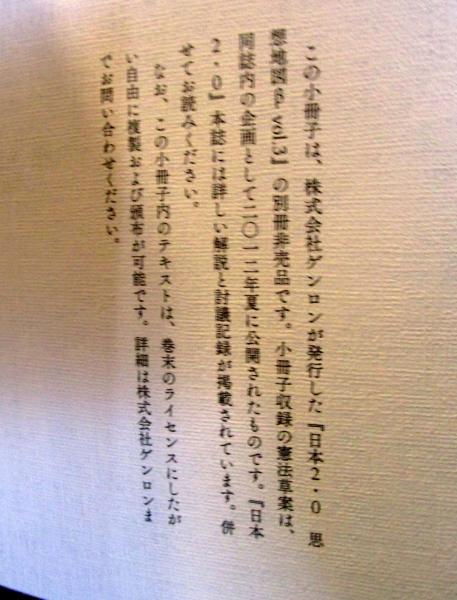 この小冊子は、株式会社ゲンロンが発行した『日本2・0 思
想地図β vol.3』の別冊非売品です。小冊子収録の憲法草案は、
同誌内の企画として二〇一二年夏に公開されたものです。『日本
2・0』本誌には詳しい解説と討議記録が掲載されています。併
せてお読みください。
なお、この小冊子内のテキストは、巻末のライセンスにしたが
い自由に複製および頒布が可能です。詳細は株式会社ゲンロンま
でお問い合わせください。